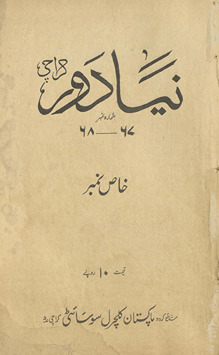 نیا دور کراچی
شمارہ نمبر
۶۷ — ۶۸
خاص نمبر
قیمت ۱۰ روپے
شائع کردہ پاکستان کلچرل سوسائٹی کراچی